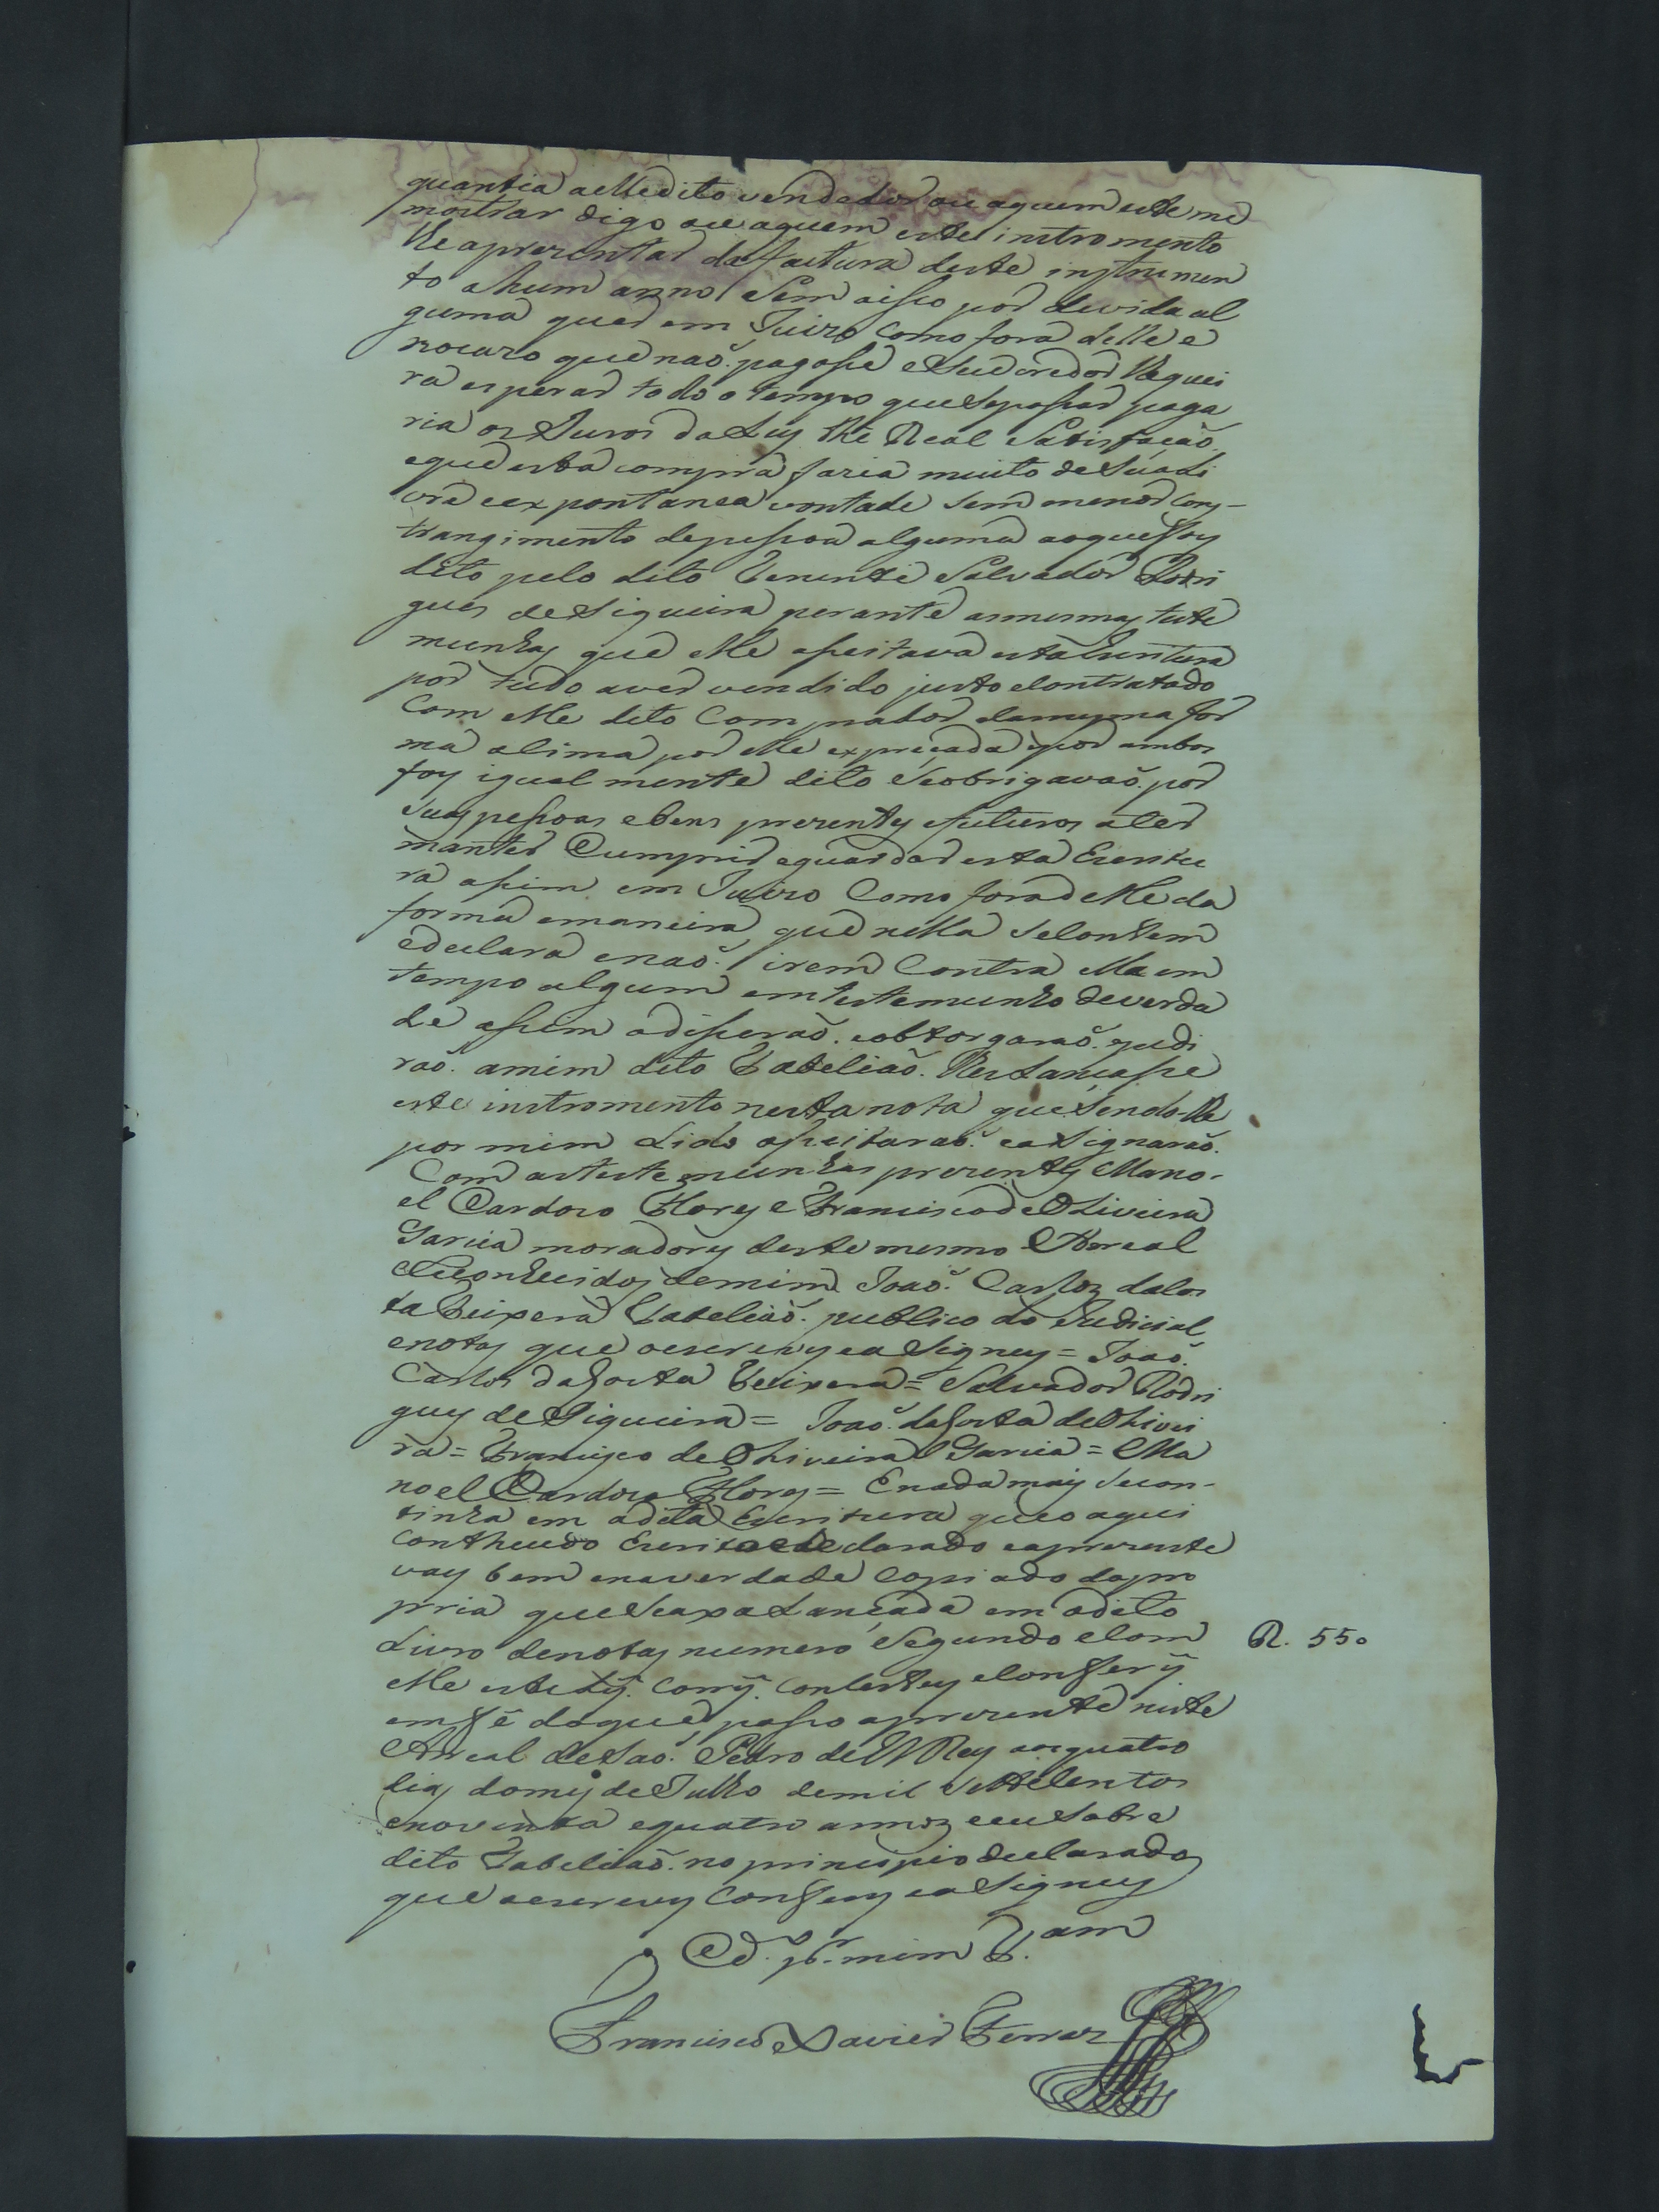 quantia a elle dito vendedor ou aquem este me
mostrar digo ou aquem este instromento
lhe aprezentar da factura deste instrumen
to ahum anno Sem aisso por duvida al
guma quer em Juizo Como fora delle e
no cazo que naõ pagasse e Seu credor lhe quei
ra esperar todo o tempo que Sepassar paga
ria os Juros da Ley the Real Satisfação
eque esta compra fazia muito de Sua Li
vre eexpontanea vontade sem menor Cons-
trangimento depessoa alguma aoque foy
dito pelo dito Tenente Salvador Rodri
gues de Siqueira perante asmesmas teste
munhas que elle aseitava esta Escritura
por tudo aver vendido justo eContratado
Com elle dito Comprador damesma for
ma asima por elle expreçada epor ambos
foy igual mente dito Seobrigavaõ por
suas pessoas ebens prezentes efuturos ater
manter Cumprir eguardar esta Escritu
ra assim em Juizo Como fora delle da
forma emaneira que nella seContem
edeclara enaõ irem Contra ella em
tempo algum emtestemunho deverda
de assim odisseraõ eobtorgaraõ epedi
raõ amim dito Tabeliaõ lhes Lançasse
este instromento nesta nota que Sendo-lhe
por mim Lido aseitaraõ eaSignaraõ
Com astestemunhas prezentes Mano-
el Cardozo Flores e Francisco de Oliveira
Garcia moradores deste mesmo Arreal
eReconhecidos demim Joaõ Carlos daCos
ta Teixera Tabeliaõ publico do Judicial
enotas que oescrevy ea Signey = Joaõ
Carlos daCosta Teixera = Salvador Rodri
gues de Siqueira = Joaõ daCosta de Olivei
ra = Francisco de Oliveira Garcia = Ma
noel Cardozo Flores = Enada mais Secon-
tinha em adita Escritura queo aqui
contheudo Escrito edeclarado eaprezente
vay bem enaverdade Copiado dapro
pria que Seaxa Lançada em odito
Livro denotas numero Segundo eCom
elle esta Ly Corry Contestey eConfery
emfé doque passo aprezente neste
Arreal de Saõ Pedro de ElRey aosquatro
dias domes de Julho demil Settecentos
enoventa equatro annos eeu Sobre
dito Tabeliaõ no principio declarado
que oescrevy Confery ea Signey
R. 550
Francisco Xavier Ferraz